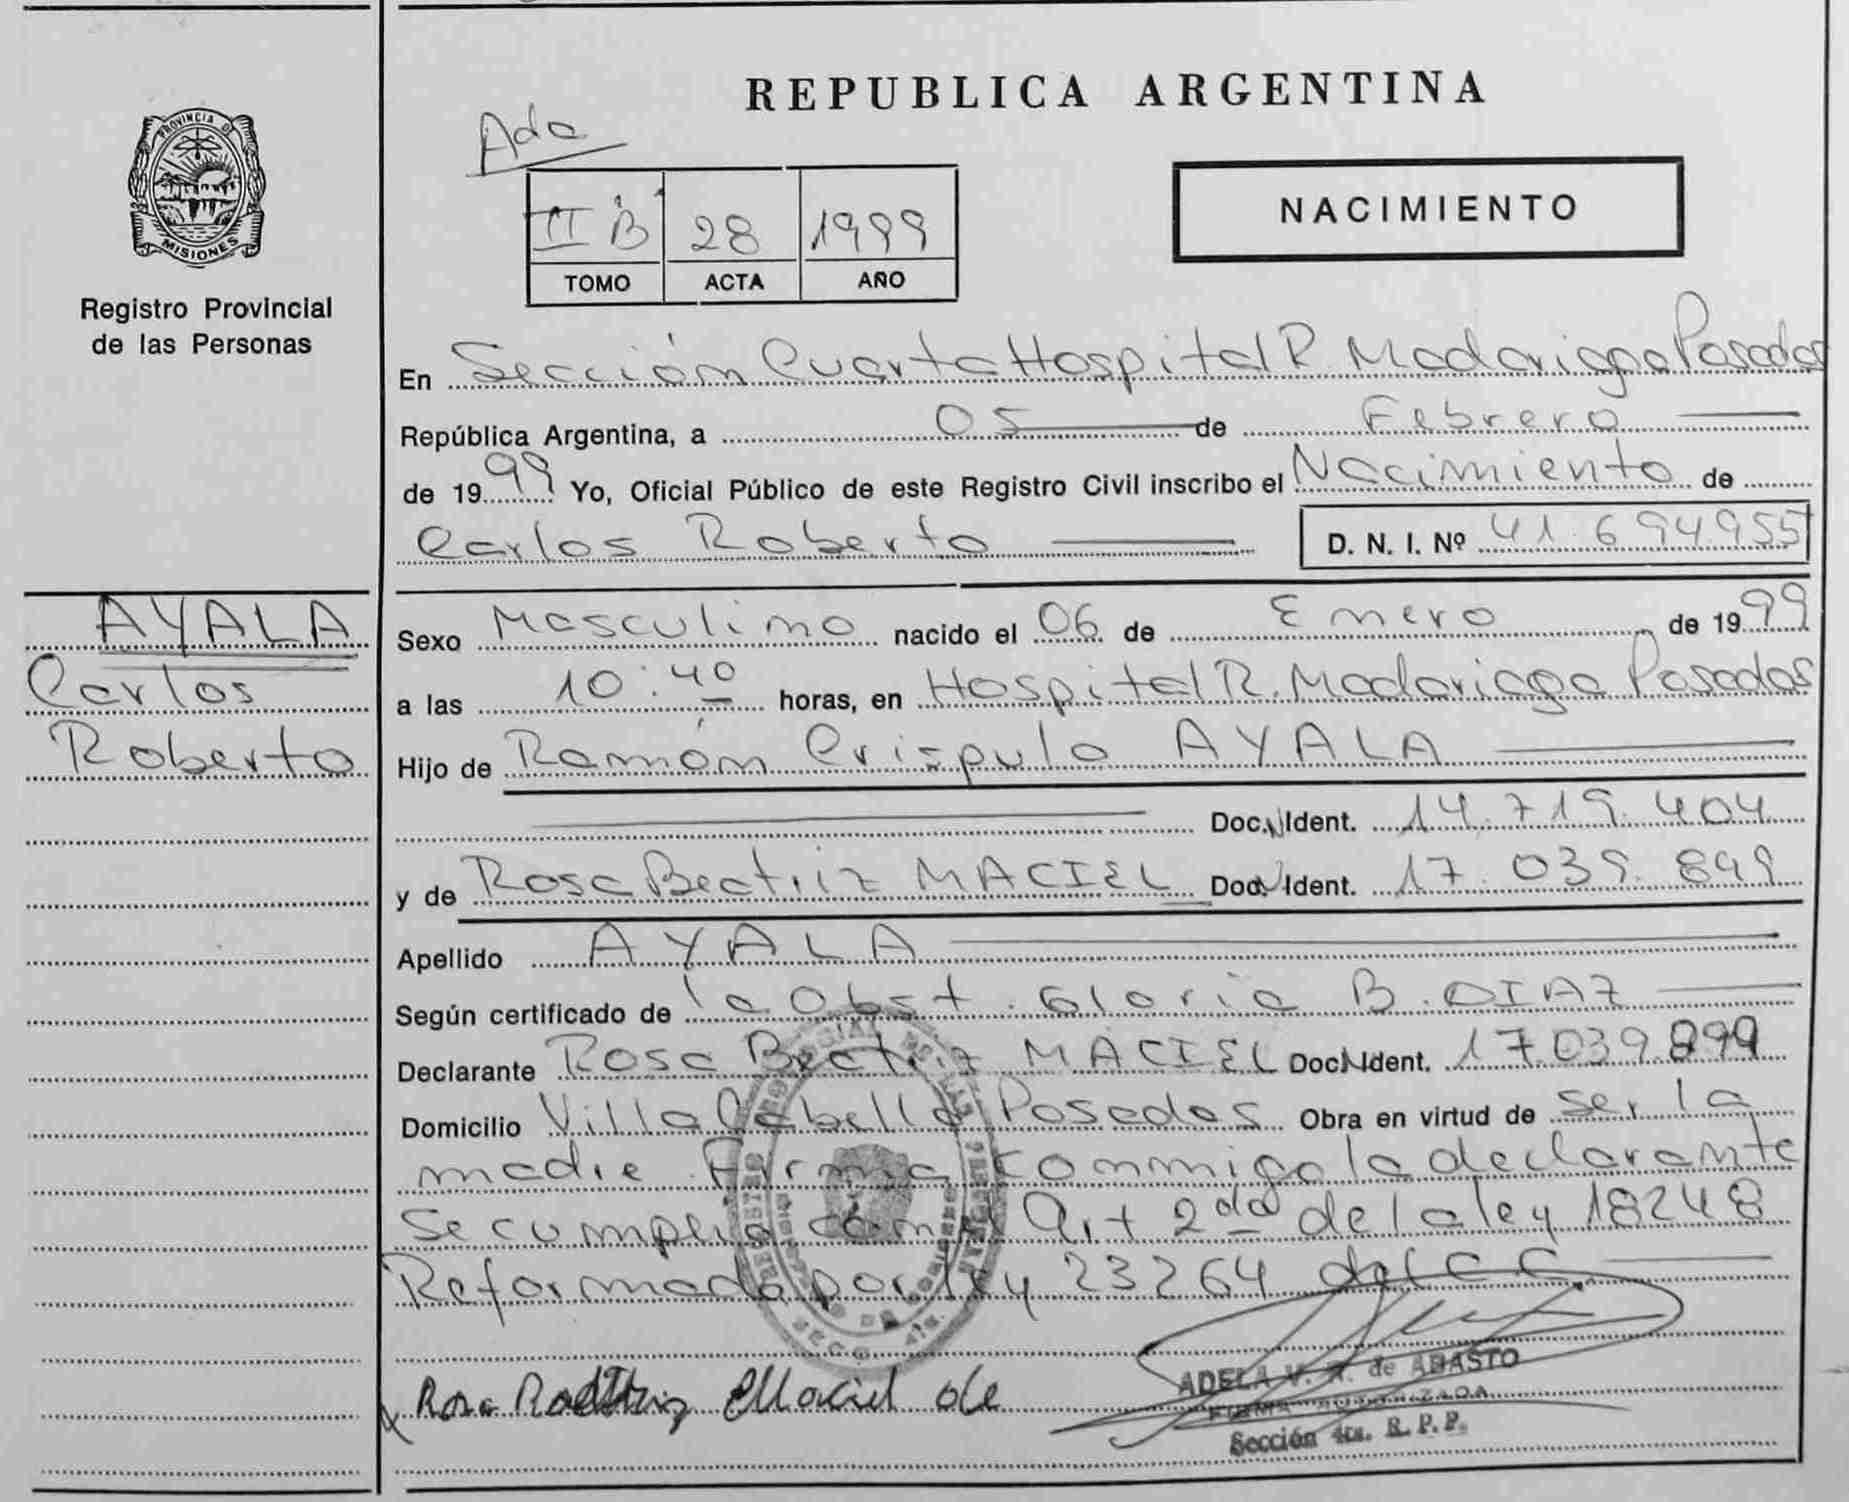 REPUBLICA ARGENTINA
PROVINCIA DE
MISIONES
Registro Provincial
de las Personas
Ada
II B 28 1999
TOMO ACTA AÑO
NACIMIENTO
En Sección Cuarta Hospital R Madariaga Posadas
República Argentina, a 05 de Febrero
de 1999 Yo, Oficial Público de este Registro Civil inscribo el Nacimiento de
Carlos Roberto D. N. I. Nº 41.694955
AYALA
Carlos
Roberto
Sexo Masculino nacido el 06 de Enero de 1999
a las 10:40 horas, en Hospital R. Madariaga Posadas
Hijo de Ramón Crispulo AYALA
Doc. N Ident. 14.719.404
y de Rosa Beatriz MACIEL Doc. N Ident. 17.039.899
Apellido AYALA
Según certificado de la Obst. Gloria B. DIAZ
Declarante Rosa Beatriz MACIEL Doc N Ident. 17.039.899
Domicilio Villa Cabello Posadas Obra en virtud de ser la
madre. Firma conmigo la declarante
Se cumplió con el Art 2da de la ley 18248
Reformada por ley 23264 del CC
Rosa Maciel de
ADELA V. de ABASTO
FIRMA AUTORIZADA
Sección 4ta. R. P. P.